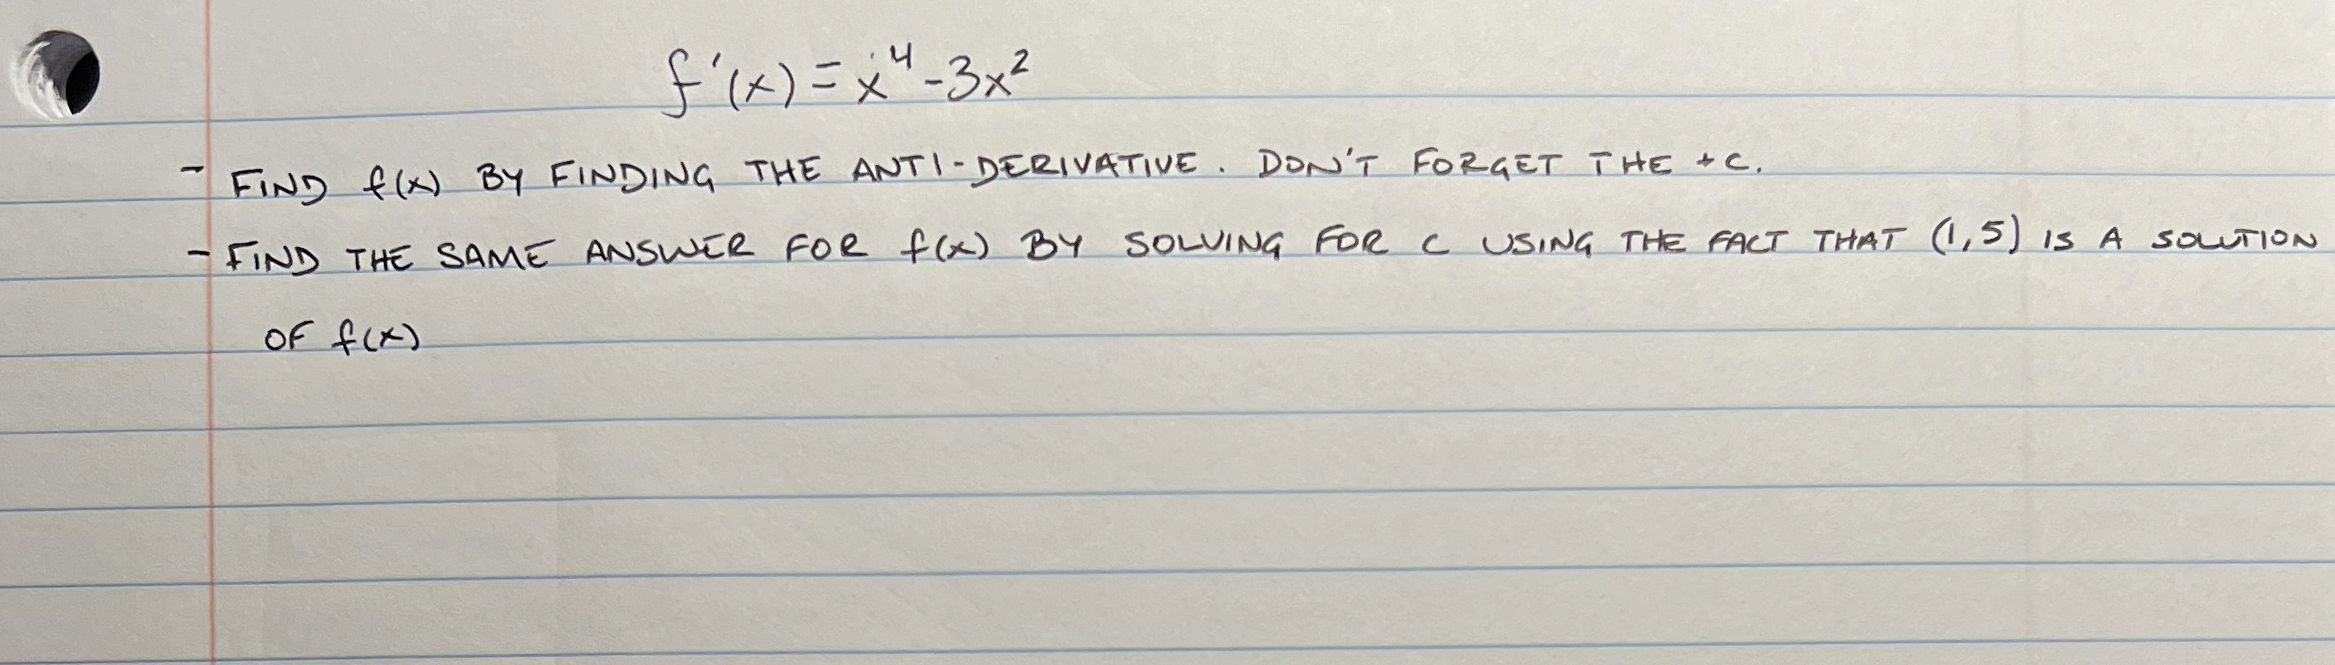 f'(x) = x⁴ - 3x²
- FIND f(x) BY FINDING THE ANTI-DERIVATIVE. DON'T FORGET THE +C.
- FIND THE SAME ANSWER FOR f(x) BY SOLVING FOR C USING THE FACT THAT (1,5) IS A SOLUTION
OF f(x)